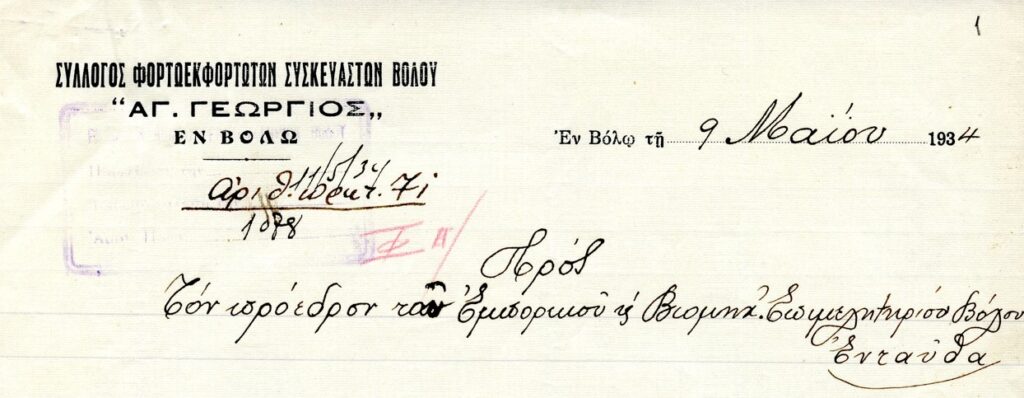 1
ΣΥΛΛΟΓΟΣ ΦΟΡΤΩΕΚΦΟΡΤΩΤΩΝ ΣΥΣΚΕΥΑΣΤΩΝ ΒΟΛΟΥ
“ΑΓ. ΓΕΩΡΓΙΟΣ„
ΕΝ ΒΟΛΩ
Ἐν Βόλῳ τῇ 9 Μαΐου 1934
11/5/34
Ἀριθ. πρωτ. 71
Πρὸς
Τὸν πρόεδρον τοῦ Ἐμπορικοῦ & Βιομηχ. Ἐπιμελητηρίου Βόλου
Ἐνταῦθα